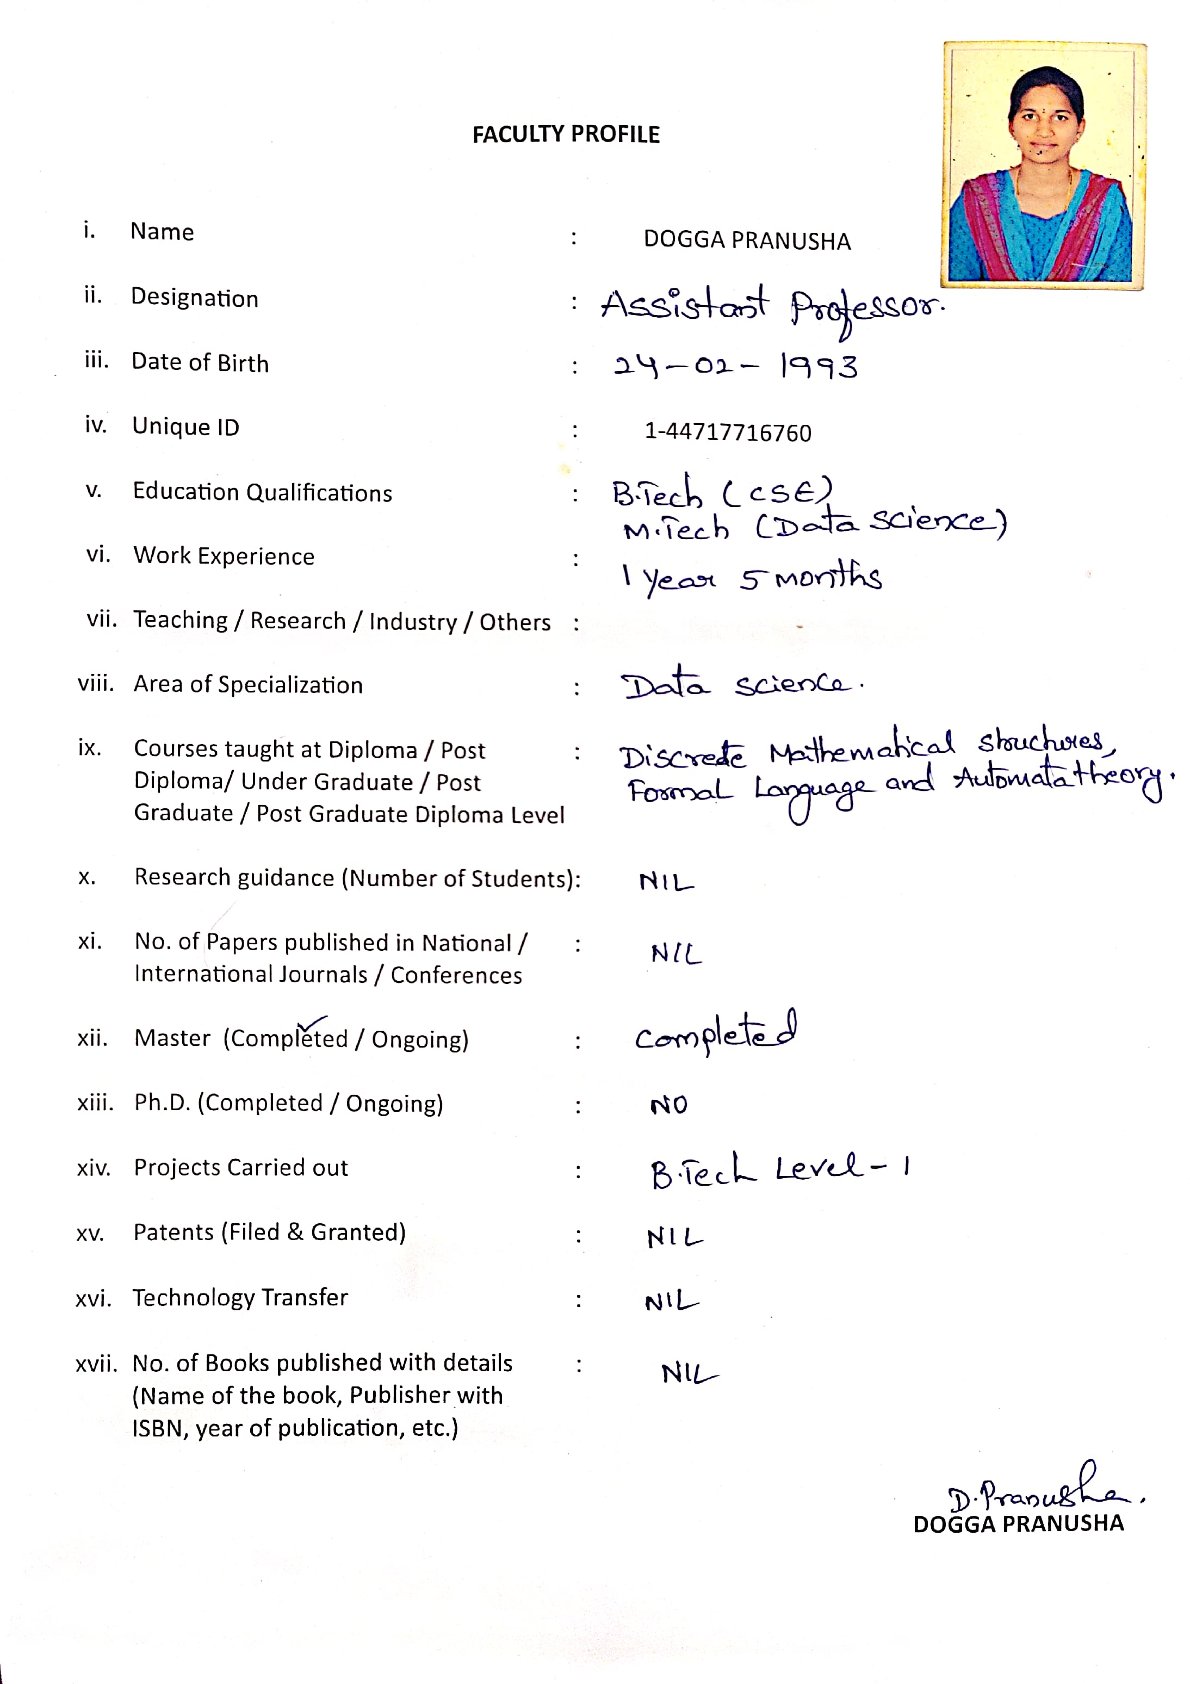 FACULTY PROFILE
i. Name : DOGGA PRANUSHA
ii. Designation : Assistant Professor.
iii. Date of Birth : 24-02-1993
iv. Unique ID : 1-44717716760
v. Education Qualifications : B.Tech (CSE)
M.Tech (Data Science)
vi. Work Experience : 1 Year 5 Months
vii. Teaching / Research / Industry / Others :
viii. Area of Specialization : Data Science.
ix. Courses taught at Diploma / Post : Discrete Mathematical Structures,
Diploma/ Under Graduate / Post Formal Language and Automata theory.
Graduate / Post Graduate Diploma Level
x. Research guidance (Number of Students): NIL
xi. No. of Papers published in National / : NIL
International Journals / Conferences
xii. Master (Completed / Ongoing) : Completed
xiii. Ph.D. (Completed / Ongoing) : NO
xiv. Projects Carried out : B.Tech Level - 1
xv. Patents (Filed & Granted) : NIL
xvi. Technology Transfer : NIL
xvii. No. of Books published with details : NIL
(Name of the book, Publisher with
ISBN, year of publication, etc.)
D.Pranusha.
DOGGA PRANUSHA